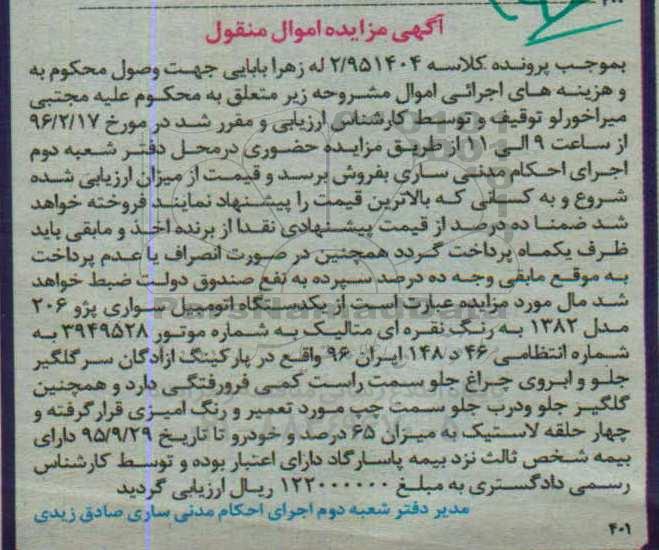 آگهی مزایده اموال منقول
بموجب پرونده کلاسه ۲/۹۵۱۴۰۴ له زهرا بابایی جهت وصول محکوم به
و هزینه های اجرائی اموال مشروحه زیر متعلق به محکوم علیه مجتبی
میراخورلو توقیف و توسط کارشناس ارزیابی و مقرر شد در مورخ ۹۶/۲/۱۷
از ساعت ۹ الی ۱۱ از طریق مزایده حضوری درمحل دفتر شعبه دوم
اجرای احکام مدنی ساری بفروش برسد و قیمت از میزان ارزیابی شده
شروع و به کسانی که بالاترین قیمت را پیشنهاد نمایند فروخته خواهد
شد ضمنا ده درصد از قیمت پیشنهادی نقدا از برنده اخذ و مابقی باید
ظرف یکماه پرداخت گردد همچنین در صورت انصراف یا عدم پرداخت
به موقع مابقی وجه ده درصد سپرده به نفع صندوق دولت ضبط خواهد
شد مال مورد مزایده عبارت است از یکدستگاه اتومبیل سواری پژو ۲۰۶
مدل ۱۳۸۲ به رنگ نقره ای متالیک به شماره موتور ۳۹۴۹۵۲۸ به
شماره انتظامی ۴۶ د ۱۴۸ ایران ۹۶ واقع در پارکینگ ازادگان سر گلگیر
جلو و ابروی چراغ جلو سمت راست کمی فرورفتگی دارد و همچنین
گلگیر جلو ودرب جلو سمت چپ مورد تعمیر و رنگ امیزی قرار گرفته و
چهار حلقه لاستیک به میزان ۶۵ درصد و خودرو تا تاریخ ۹۵/۹/۲۹ دارای
بیمه شخص ثالث نزد بیمه پاسارگاد دارای اعتبار بوده و توسط کارشناس
رسمی دادگستری به مبلغ ۱۲۲۰۰۰۰۰۰ ریال ارزیابی گردید
مدیر دفتر شعبه دوم اجرای احکام مدنی ساری صادق زیدی
۴۰۱